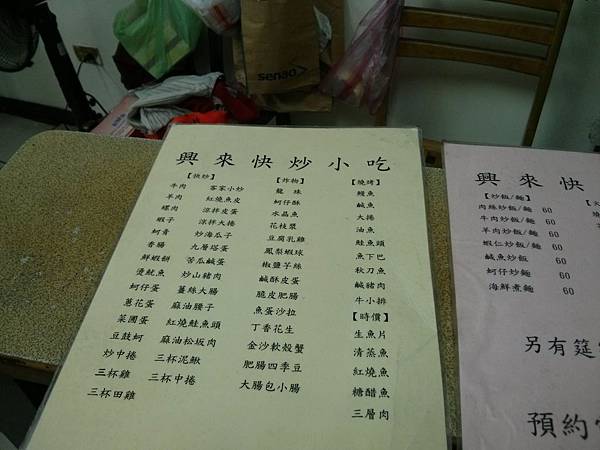 senao
興來快炒小吃
【快炒】
牛肉
羊肉
螺肉
蝦子
蚵青
香腸
鮮蝦餅
燙魷魚
蚵仔蛋
蔥花蛋
菜圃蛋
豆鼓蚵
炒中捲
三杯雞
三杯田雞
客家小炒
紅燒魚皮
涼拌皮蛋
涼拌大捲
炒海瓜子
九層塔蛋
苦瓜鹹蛋
炒山豬肉
薑絲大腸
麻油腰子
紅燒鮭魚頭
麻油松坂肉
三杯泥鰍
三杯中捲
【炸物】
龍珠
蚵仔酥
水晶魚
花枝漿
豆腐乳雞
鳳梨蝦球
椒鹽芋絲
鹹酥皮蛋
脆皮肥腸
魚蛋沙拉
丁香花生
金沙軟殼蟹
肥腸四季豆
大腸包小腸
【燒烤】
鰻魚
鹹魚
大捲
油魚
鮭魚頭
魚下巴
秋刀魚
鹹豬肉
牛小排
【時價】
生魚片
清蒸魚
紅燒魚
糖醋魚
三層肉
興來快
【炒飯/麵】
肉絲炒飯/麵 60
牛肉炒飯/麵 60
羊肉炒飯/麵 60
蝦仁炒飯/麵 60
鹹魚炒飯 60
蚵仔炒麵 60
海鮮煮麵 60
另有筵
預約